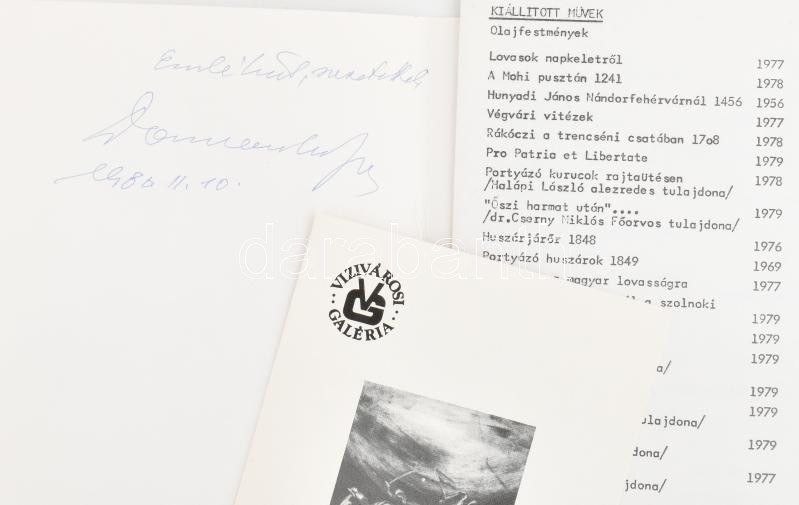 Emlékül, szeretettel
1980 II. 10.
KIÁLLITOTT MŰVEK
Olajfestmények
Lovasok napkeletről 1977
A Mohi pusztán 1241 1978
Hunyadi János Nándorfehérvárnál 1456 1956
Végvári vitézek 1977
Rákóczi a trencséni csatában 17o8 1978
Pro Patria et Libertate 1979
Portyázó kurucok rajtaütésen 1978
/Halápi László alezredes tulajdona/
"Őszi harmat után".... 1979
/dr.Cserny Miklós Főorvos tulajdona/
Huszárjárőr 1848 1976
Portyázó huszárok 1849 1969
magyar lovasságra 1977
a szolnoki
1979
1979
1979
a/
1979
1979
tulajdona/
1979
dona/
1977
jdona/
VIZIVÁROSI
GALÉRIA
darabanth